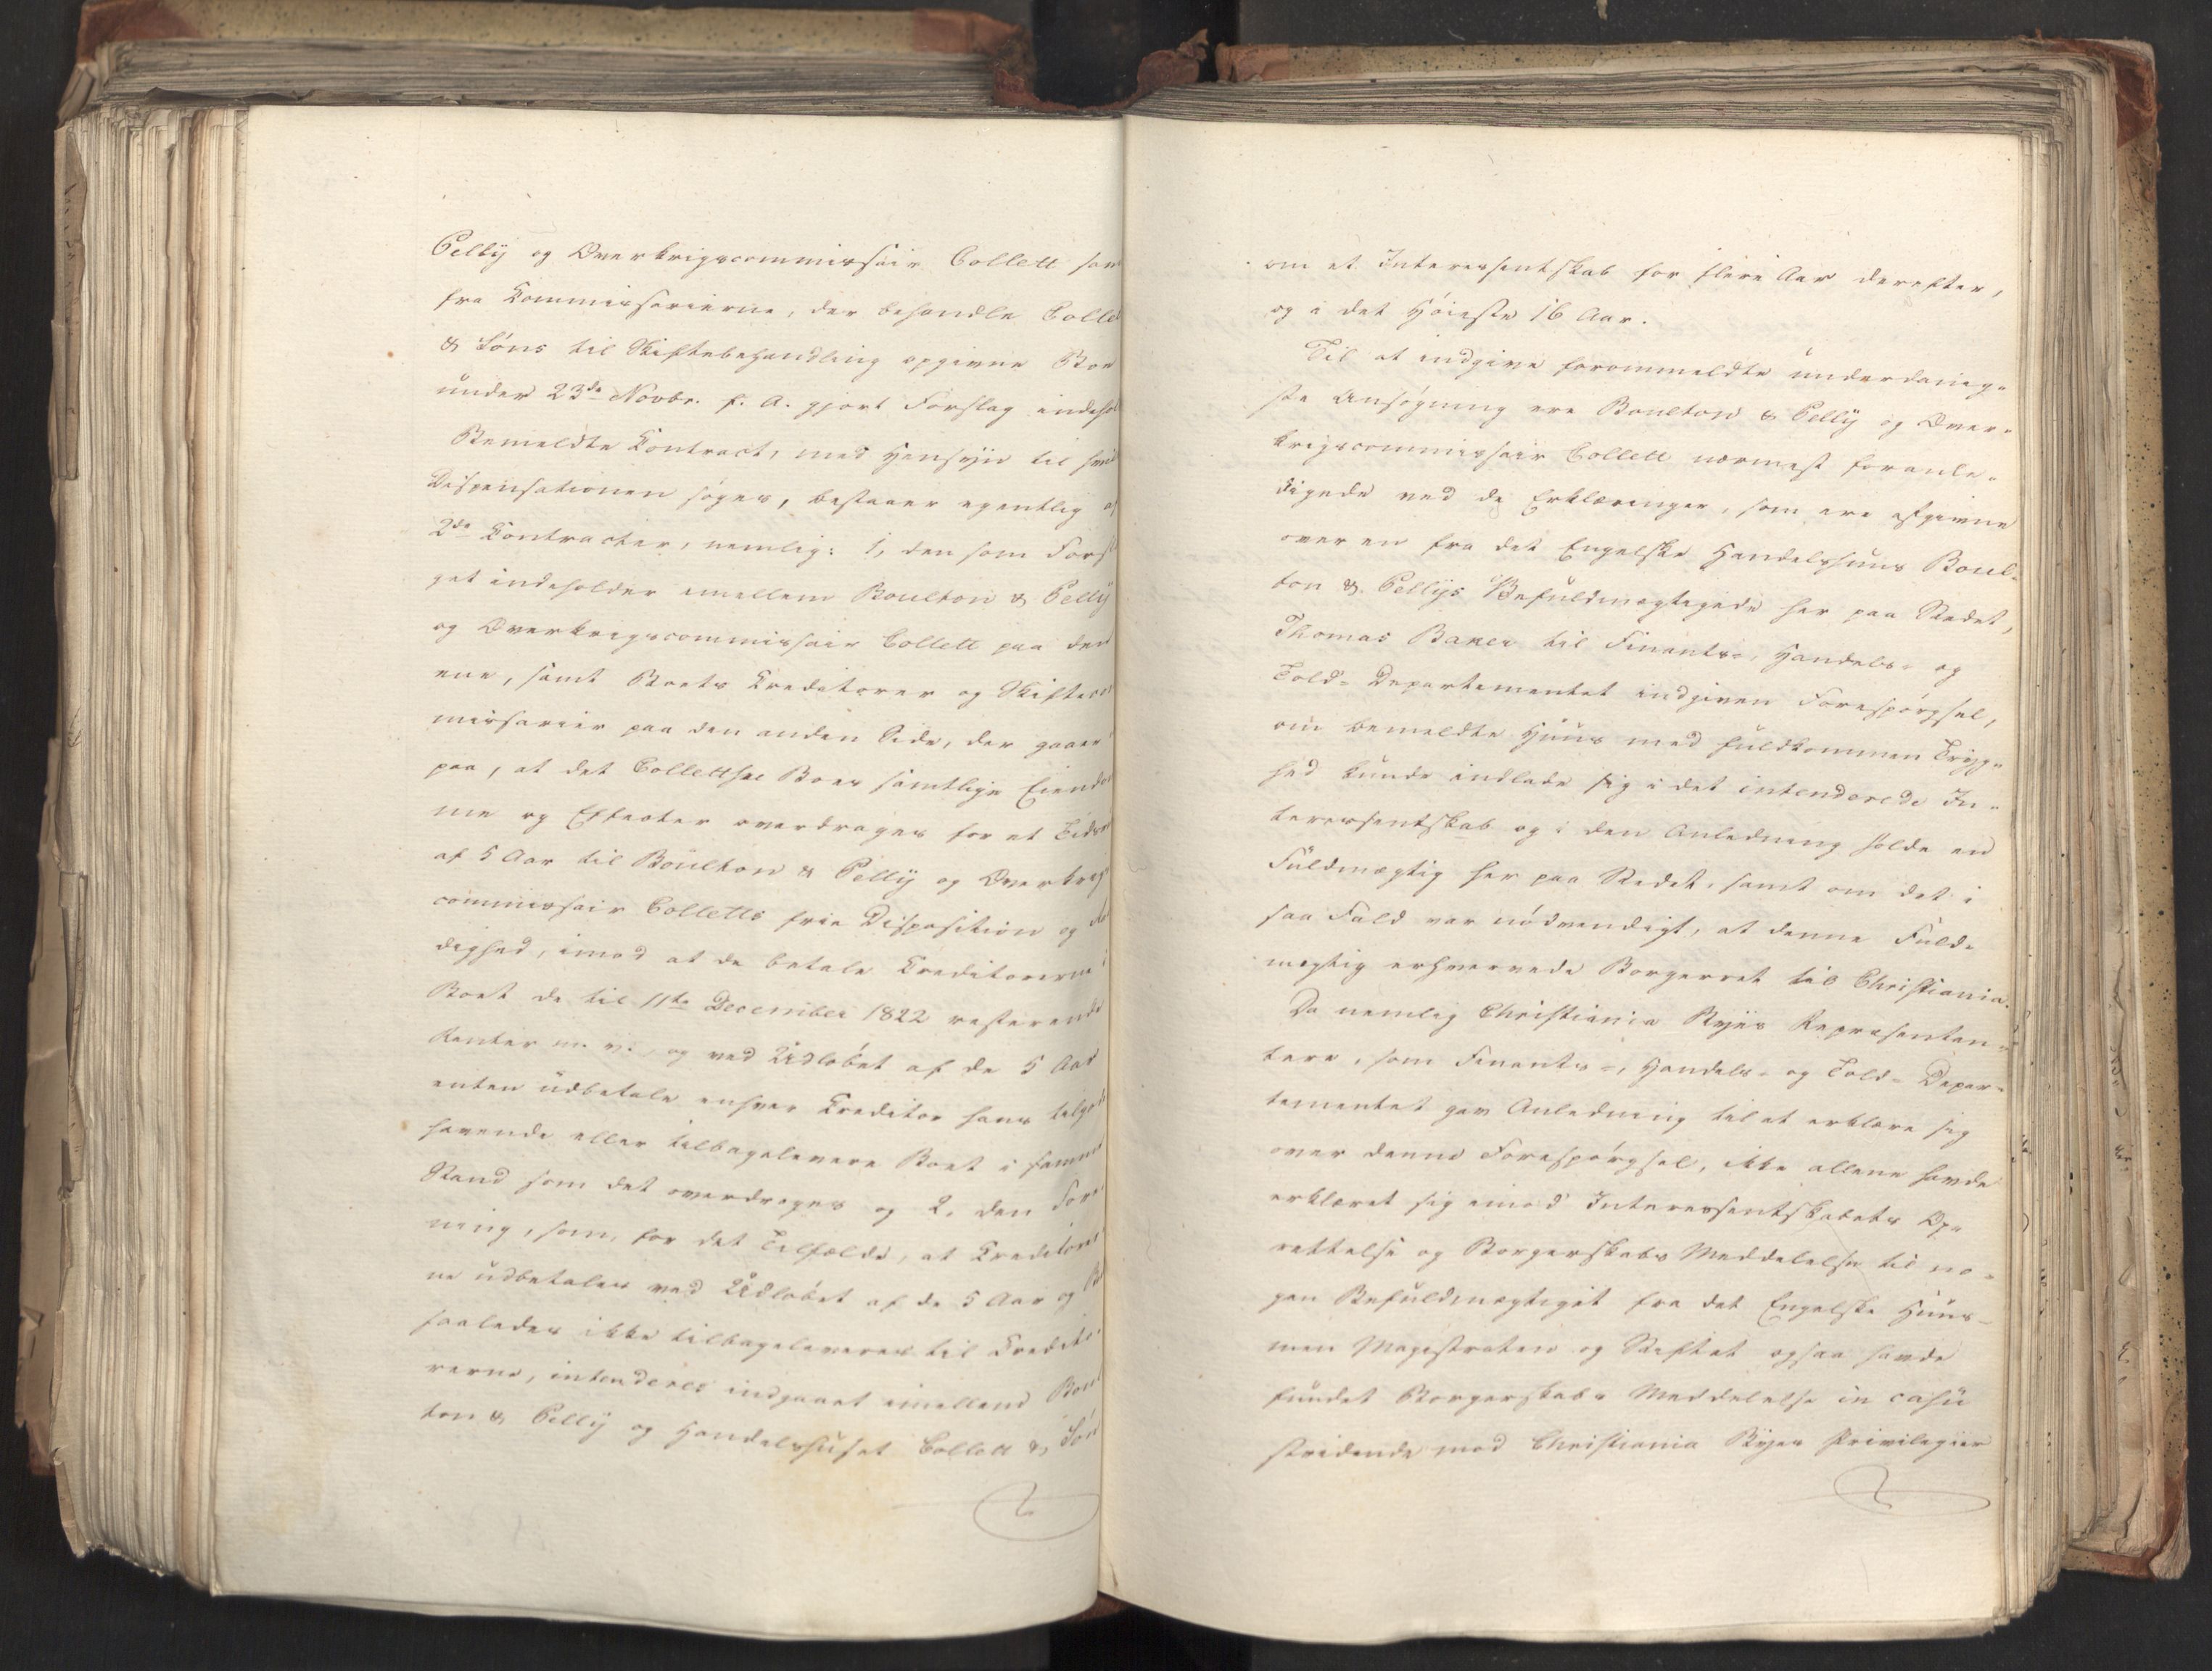 Pelly og Overkrigscommissair Collett som
fra Commissarierne, der behandle Collett
& Söns til Skiftebehandling opgivne Boe
under 23de Novbr. f. A. gjort Forslag indehol
Bemeldte Contract, med Hensyn til hvil
Dispensationen söges, bestaaer egentlig af
2de Contracter, nemlig: 1, den som Forsl
get indeholder imellem Boulton & Pelly
og Overkrigscommissair Collett paa den
ene, samt Boets Creditorer og Skiftecom
missarier paa den anden Side, der gaaer
paa, at det Collettske Boes samtlige Eiendom
me og Effecter overdrages for et Tidsrum
af 5 Aar til Boulton & Pelly og Overkrigs
commissair Colletts frie Disposition og
dighed, imod at de betale Creditorerne i
Boet de til 11te December 1822 resterende
Renter m. v., og ved Udlöbet af de 5 Aar
enten udbetale enhver Creditor hans tilgode
havende eller tilbagelevere Boet i samme
Stand som det overdrages og 2, den Fore
ning, som, for det Tilfælde, at Creditorer
ne udbetales ved Udlöbet af de 5 Aar og Bo
saaledes ikke tilbageleveres til Credito
rerne, intenderes indgaaet imellem Boul
ton & Pelly og Handelshuset Collett & Sön
om et Interessentskab for flere Aar derefter,
og i det Höieste 16 Aar.
Til at indgive forommeldte underdanig-
ste Ansögning ere Boulton & Pelly og Over-
krigscommissair Collett nærmest foranle-
digede ved de Erklæringer, som ere afgivne
over en fra det Engelske Handelshuus Boul-
ton & Pellys Befuldmægtigede her paa Stedet,
Thomas Baker til Finants-, Handels- og
Told-Departementet indgiven Forespörgsel,
om bemeldte Huus med fuldkommen Tryg-
hed kunde indlade sig i det intenderede In-
teressentskab og i den Anledning holde en
Fuldmægtig her paa Stedet, samt om det i
saa Fald var nödvendigt, at denne Fuld-
mægtig erhvervede Borgerret til Christiania.
Da nemlig Christiania Byes Repræsentan-
tere, som Finants-, Handels- og Told-Depar-
tementet gav Anledning til at erklære sig
over denne Forespörgsel, ikke allene havde
erklæret sig imod Interessentskabets Op-
rettelse og Borgerskabs Meddelelse til no-
gen Befuldmægtiget fra det Engelske Huus-
men Magistraten og Stiftet ogsaa havde
fundet Borgerskabs Meddelelse in casu
stridende mod Christiania Byes Privilegier